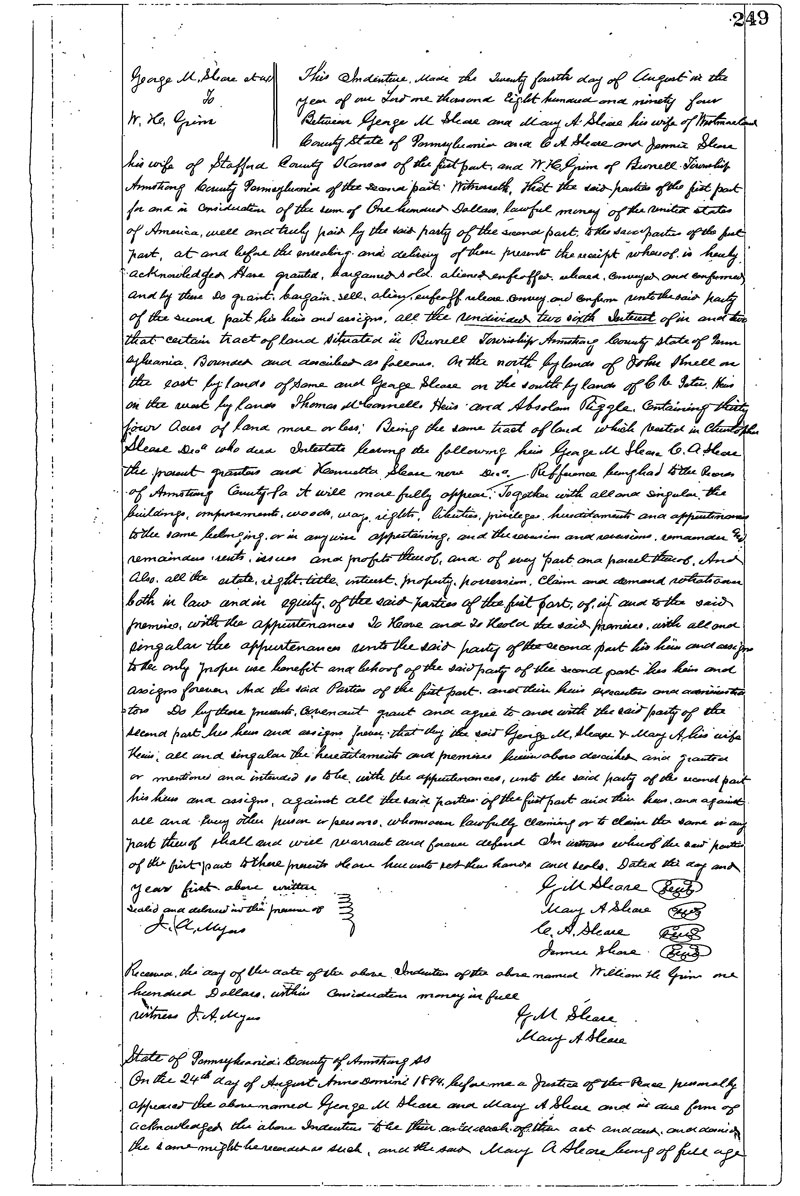 249
George M. Sleare et ux
To
W. H. Grim
This Indenture, Made the Twenty fourth day of August in the
year of our Lord one thousand Eight hundred and ninety four
Between George M Sleare and Mary A Sleare his wife of Westmoreland
County State of Pennsylvania and C A Sleare and Jennie Sleare
his wife of Stafford County Kansas of the first part, and W. H. Grim of Burrell Township
Armstrong County Pennsylvania of the second part: Witnesseth, that the said parties of the first part
for and in consideration of the sum of One hundred Dollars, lawful money of the united states
of America, well and truly paid by the said party of the second part, to the said parties of the first
part, at and before the ensealing and delivery of these presents the receipt whereof is hereby
acknowledged Have granted, bargained sold, aliened enfeoffed, released, conveyed and confirmed
and by these Do grant, bargain, sell, alien, enfeoff release convey and confirm unto the said party
of the second part his heirs and assigns, all the undivided two sixth Interest of in and to
that certain tract of land situated in Burrell Township Armstrong County State of Penn
sylvania, Bounded and described as follows. On the north by lands of John on
the east by lands of same and George Sleare on the south by lands of Heirs
on the west by lands Thomas McConnells Heirs and Absolam Containing thirty
four Acres of land more or less; Being the same tract of land which vested in Christopher
Sleare Decd who died Intestate leaving the following heirs George M Sleare C. A Sleare
the present grantors and Henrietta Sleare now Decd, Refference being had to the Records
of Armstrong County Pa it will more fully appear, Together with all and singular the
buildings, improvements, woods, ways, rights, liberties, privileges, hereditaments and appurtenances
to the same belonging, or in any wise appertaining, and the reversion and reversions, remainder and
remainders rents, issues and profits thereof, and of every part and parcel thereof, And
Also, all the estate, right, title, interest, property, possession, claim and demand whatsoever
both in law and in equity, of the said parties of the first part, of, in and to the said
premises, with the appurtenances To Have and To Hold the said premises, with all and
singular the appurtenances unto the said party of the second part his heirs and assigns
to the only proper use benefit and behoof of the said party of the second part his heirs and
assigns forever And the said Parties of the first part and their heirs executors and administra
tors Do by these presents, Covenant grant and agree to and with the said party of the
second part his heirs and assigns forever that they the said George M, Sleare & Mary A, his wife
Heirs, all and singular the hereditaments and premises herein above described and granted
or mentioned and intended so to be, with the appurtenances, unto the said party of the second part
his heirs and assigns, against all the said parties of the first part and their heirs, and against
all and every other person or persons, whomsoever lawfully claiming or to claim the same or any
part thereof shall and will warrant and forever defend In witness whereof the said parties
of the first part to these presents Have hereunto set their hands and seals. Dated the day and
year first above written
sealed and delivered in the presence of
J. A. Myers
G M Sleare Seal
Mary A Sleare Seal
C. A. Sleare Seal
Jennie Sleare Seal
Received, the day of the date of the above Indenture of the above named William H. Grim one
hundred Dollars, within consideration money in full
witness J. A. Myers
G M Sleare
Mary A Sleare
State of Pennsylvania County of Armstrong ss
On the 24th day of August Anno Domini 1894, before me a Justice of the Peace personally
appeared the above named George M Sleare and Mary A Sleare and in due form of
acknowledged the above Indenture to be their and each of their act and deed, and desired
the same might be recorded as such, and the said Mary A Sleare being of full age